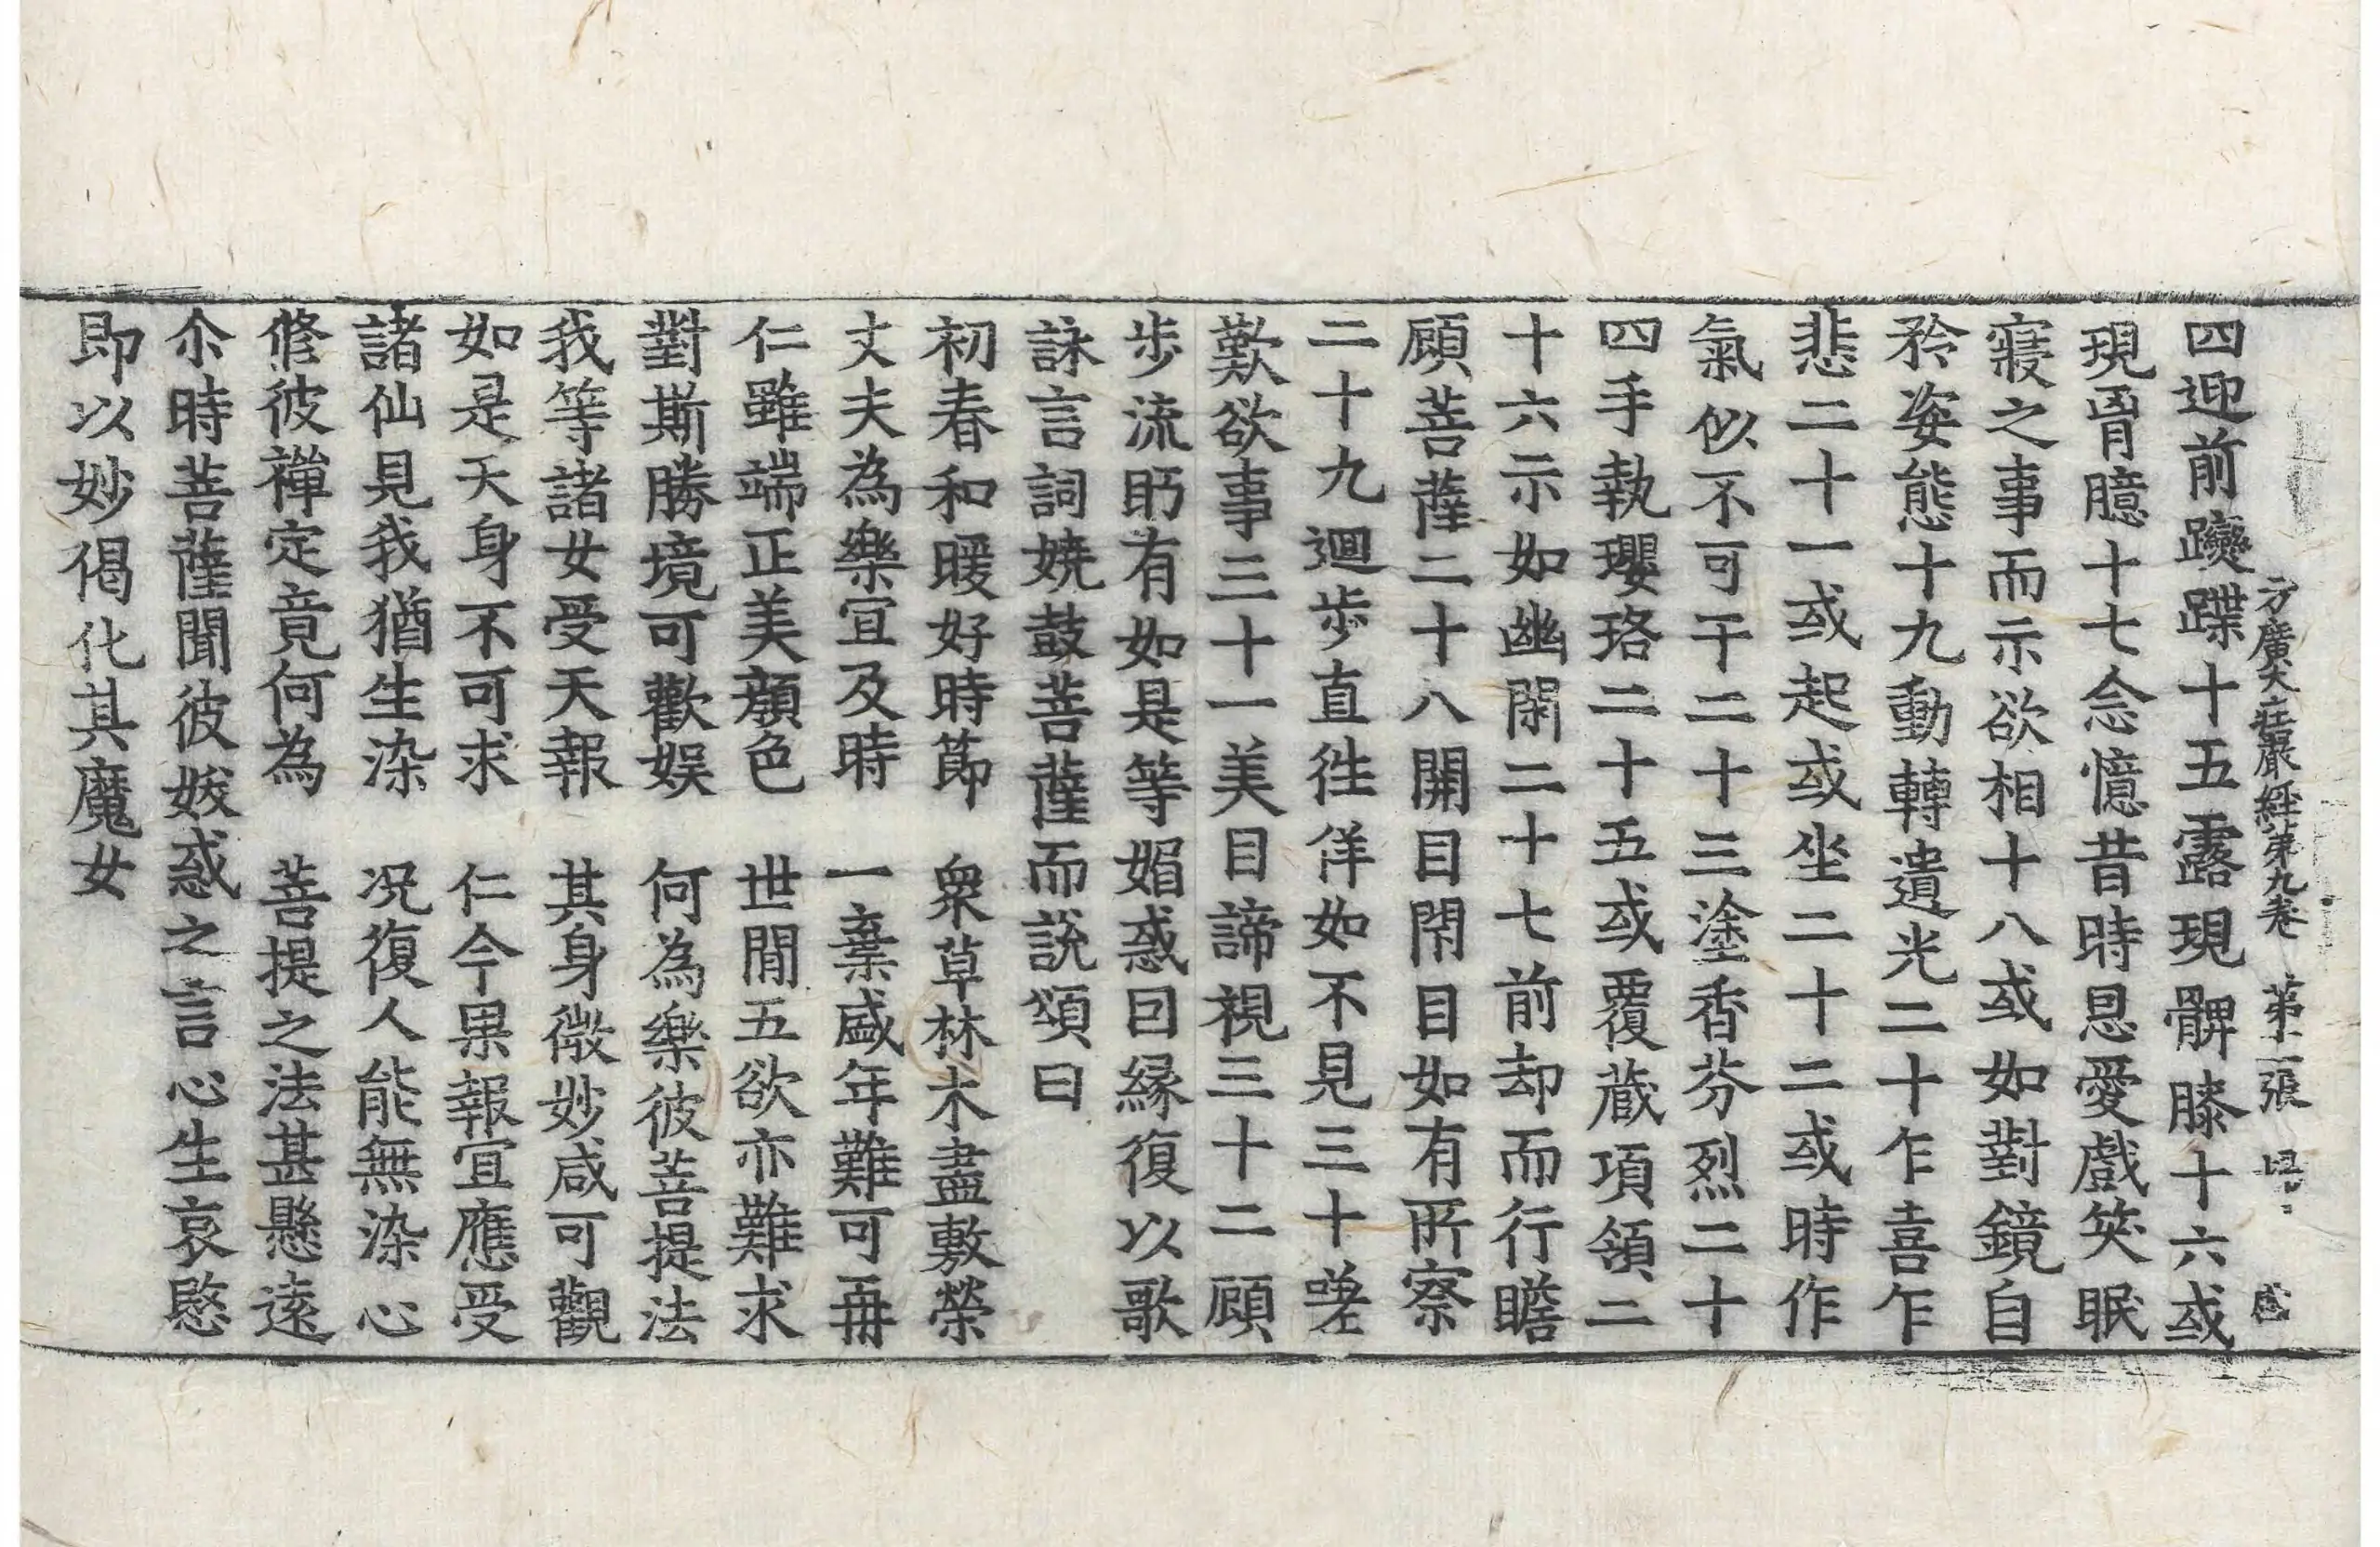 方廣大莊嚴經第九卷 第二張
四迎前躞蹀十五露現髀膝十六或
現胷臆十七念憶昔時恩愛戲笑眠
寢之事而示欲相十八或如對鏡自
矜姿態十九動轉遺光二十乍喜乍
悲二十一或起或坐二十二或時作
氣似不可干二十三塗香芬烈二十
四手執瓔珞二十五或覆藏項領二
十六示如幽閑二十七前却而行瞻
顧菩薩二十八開目閇目如有所察
二十九迴步直往佯如不見三十嗟
歎欲事三十一美目諦視三十二顧
步流眄有如是等媚惑因緣復以歌
詠言詞嬈鼓菩薩而說頌曰
初春和暖好時節 衆草林木盡敷榮
丈夫為樂宜及時 一棄盛年難可再
仁雖端正美顏色 世間五欲亦難求
對斯勝境可歡娛 何為樂彼菩提法
我等諸女受天報 其身微妙咸可觀
如是天身不可求 仁今果報宜應受
諸仙見我猶生染 况復人能無染心
修彼禪定竟何為 菩提之法甚懸遠
尒時菩薩聞彼妖惑之言心生哀愍
即以妙偈化其魔女